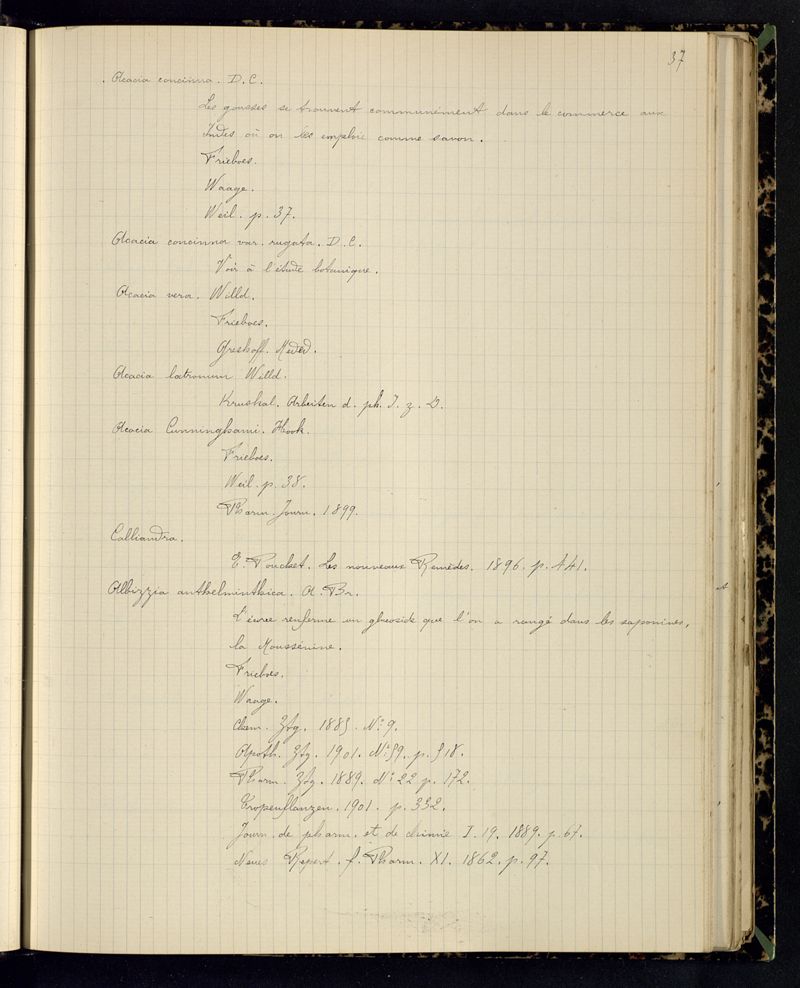 37
Acacia concinna. D.C.
Les gousses se trouvent communément dans le commerce aux
Indes où on les emploie comme savon.
Frieboes.
Waage.
Weil. p. 37.
Acacia concinna var. rugata. D.C.
Voir à l'étude botanique.
Acacia vera. Willd.
Frieboes.
Greshoff. Meded.
Acacia lætronum Willd.
Kruskal. Arbeiten d. ph. I. z. D.
Acacia Cunninghami. Hook.
Frieboes.
Weil. p. 38.
Pharm. Journ. 1899.
Calliandra.
E. Pouchet. Les nouveaux Remèdes. 1896. p. 441.
Albizzia anthelminthica. A. Br.
L'écorce renferme un glucoside que l'on a rangé dans les saponines,
la Moussénine.
Frieboes.
Waage.
Chem. Ztg. 1885. No 9.
Apoth. Ztg. 1901. No 59. p. 518.
Pharm. Ztg. 1889. No 22 p. 172.
Tropenflanzen. 1901. p. 332.
Journ. de pharm. et de chimie I. 19. 1889. p. 67.
Neues Repert. f. Pharm. XI. 1862. p. 97.